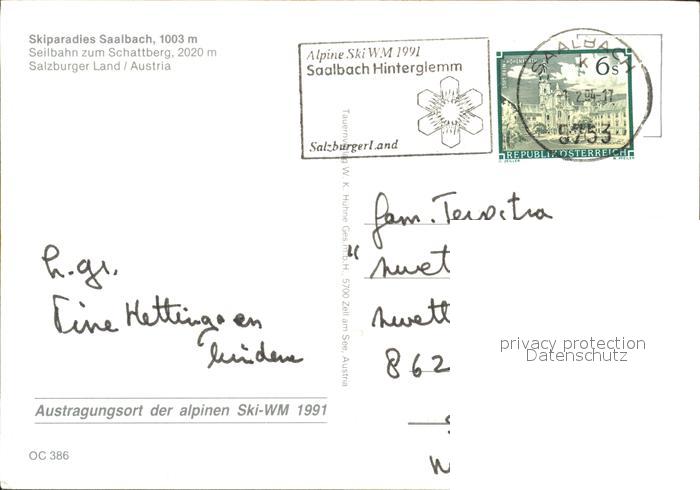 Skiparadies Saalbach, 1003 m
Seilbahn zum Schattberg, 2020 m
Salzburger Land / Austria
Alpine Ski WM 1991
Saalbach Hinterglemm
SalzburgerLand
SAALBACH
5753
6s
REPUBLIK ÖSTERREICH
Tauernverlag W. K. Huhne Ges.m.b.H., 5700 Zell am See, Austria
h. gr.
Tine
en
kinderen
Fam.
862
privacy protection
Datenschutz
Austragungsort der alpinen Ski-WM 1991
OC 386